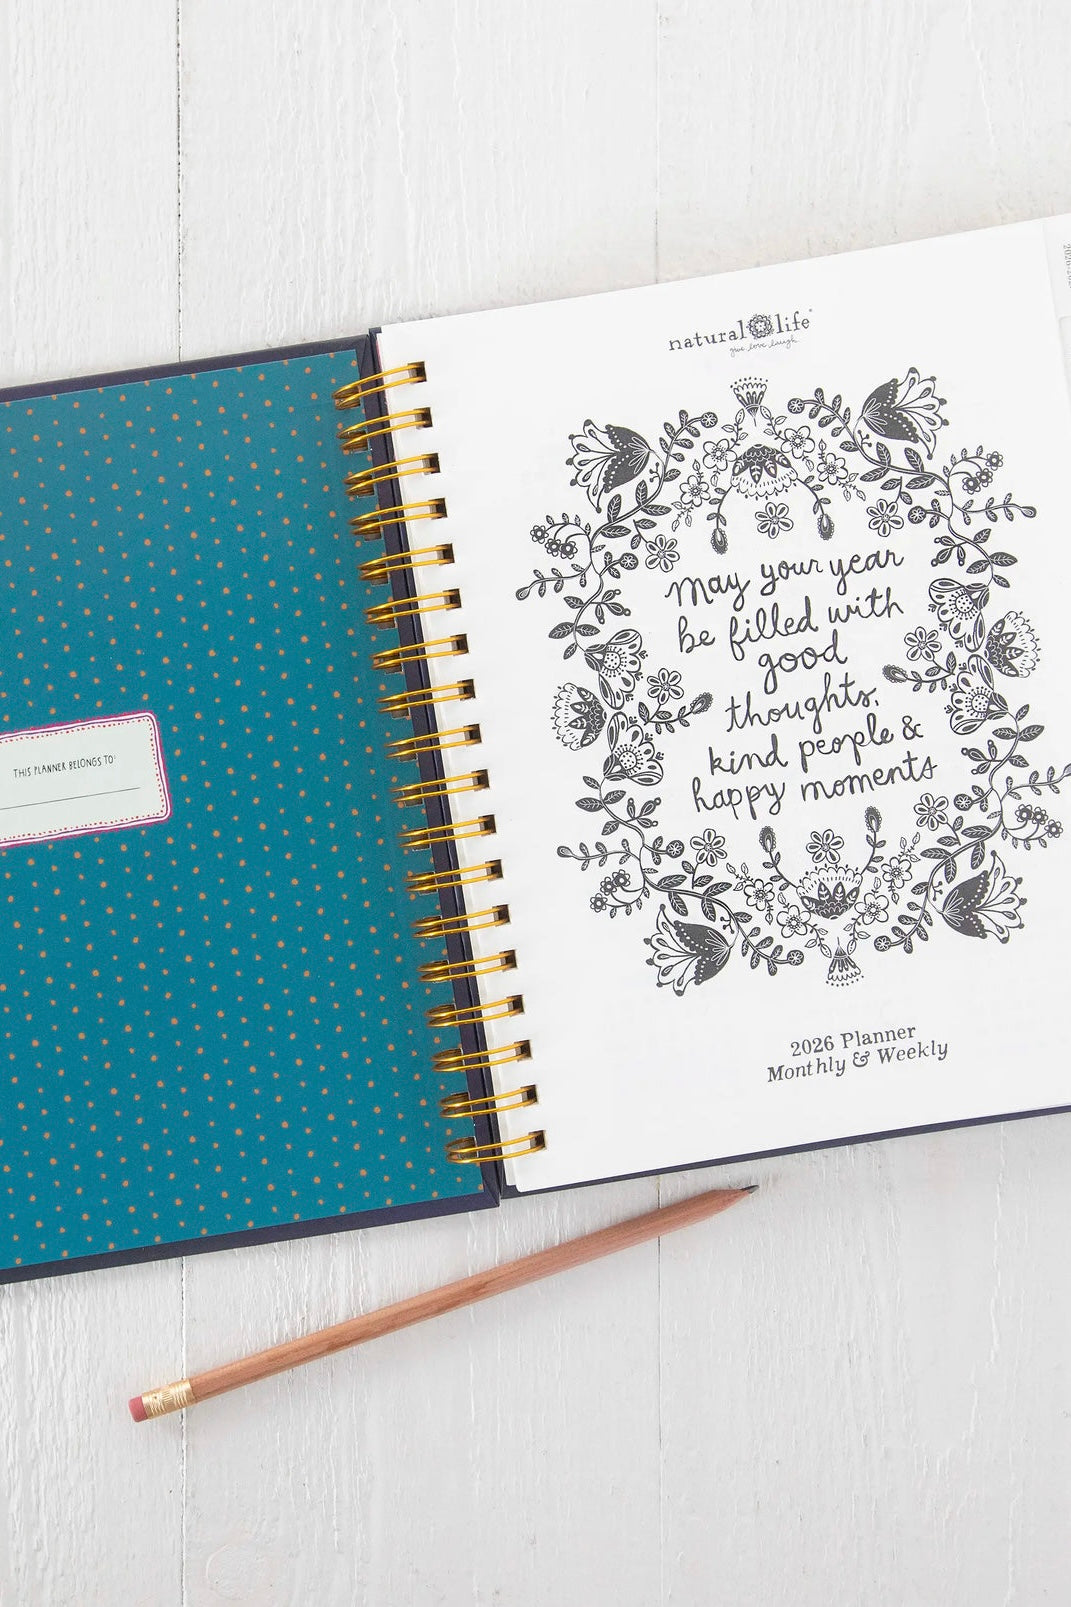 THIS PLANNER BELONGS TO:
natural life
give love laugh
May your year
be filled with
good
thoughts,
kind people &
happy moments
2026 Planner
Monthly & Weekly